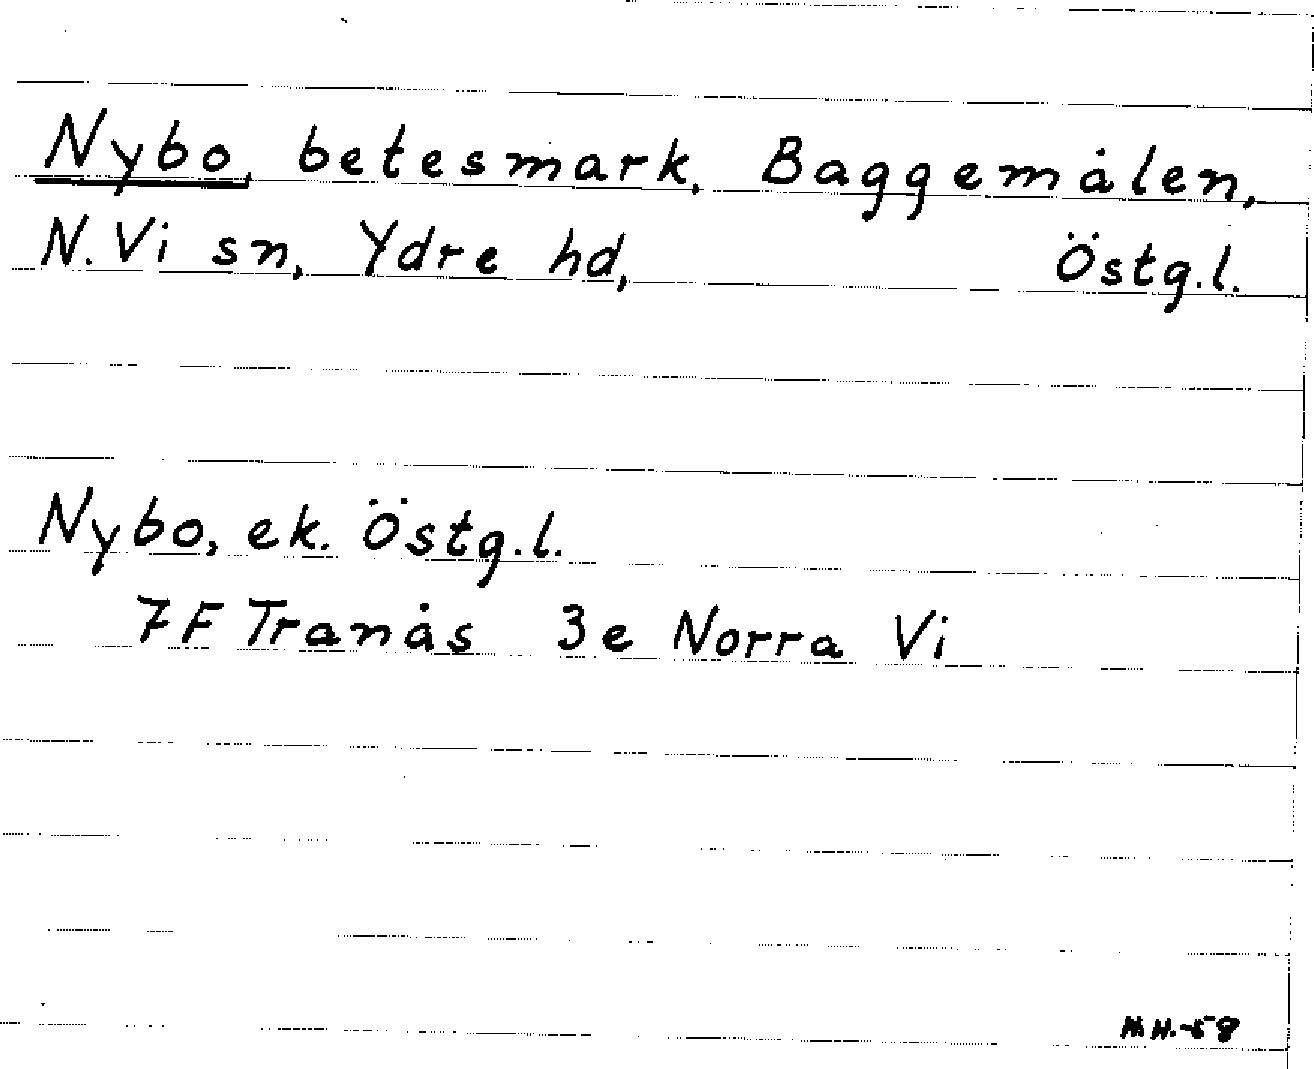 Nybo, betesmark, Baggemålen,
N. Vi sn, Ydre hd, Östg.l.
Nybo, ek. Östg.l.
7F Tranås 3e Norra Vi
M H.-58